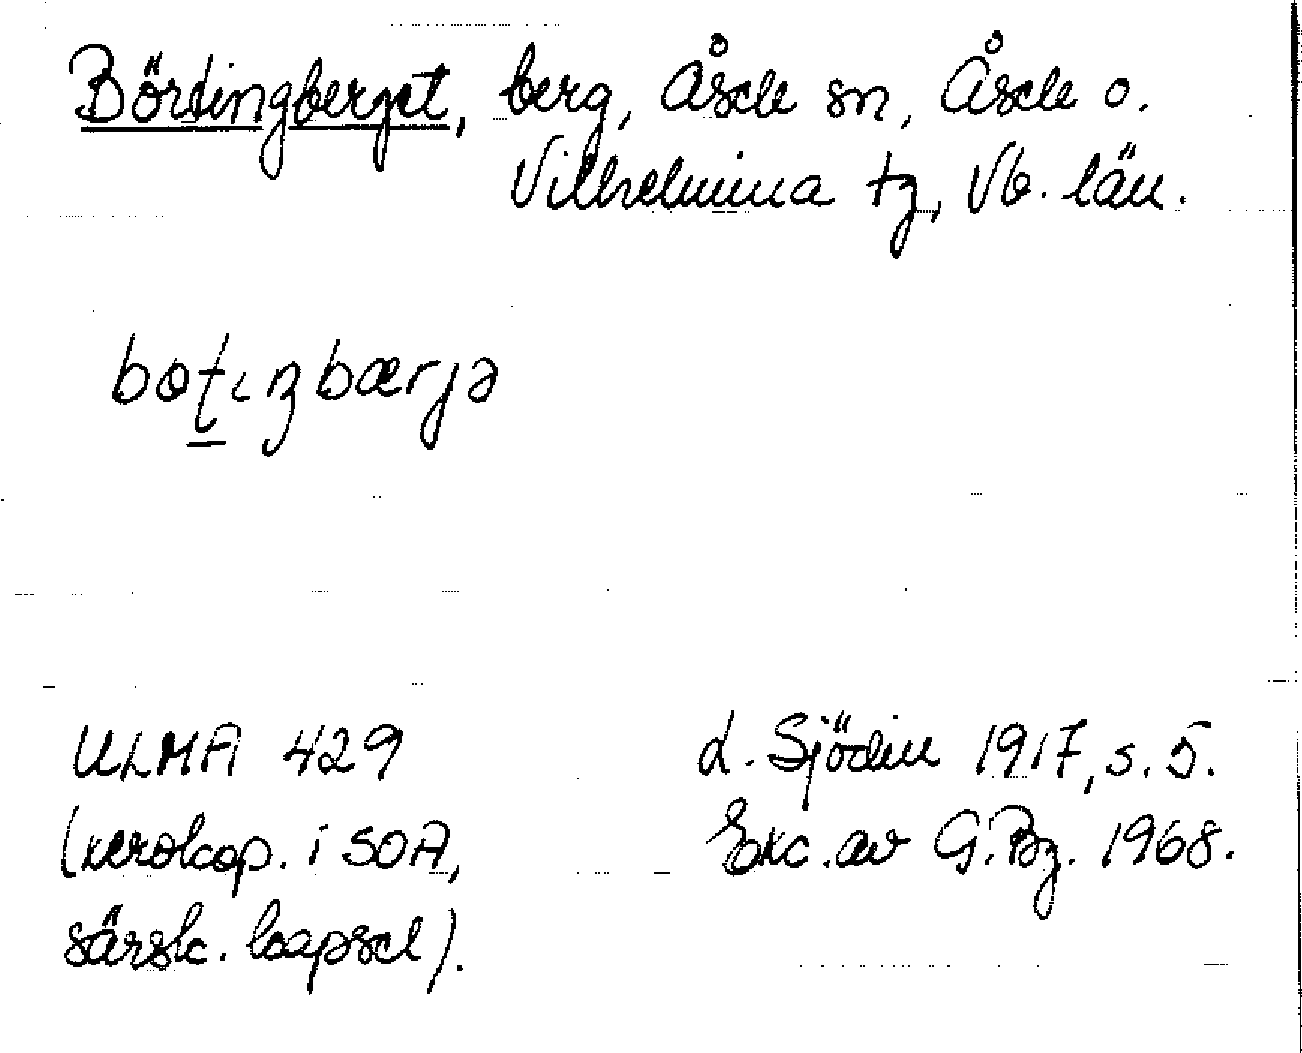 Börtingberget, berg, Åsele sn, Åsele o.
Vilhelmina tg, Vb. län.
bøtıŋbærjə
ULMA 429
(xerokop. i SOA,
särsk. kapsel).
L. Sjödin 1917, s. 5.
Exc. av G. Bg. 1968.